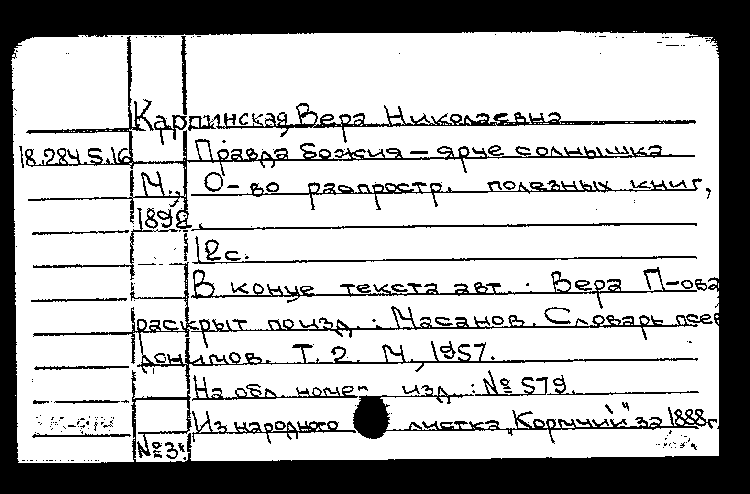 Карпинская, Вера Николаевна
18.284.5.16 Правда Божия — ярче солнышка.
М., О-во распростр. полезных книг,
1892.
12с.
В конце текста авт.: Вера П-ова
раскрыт по изд.: Масанов. Словарь псев
донимов. Т. 2. М., 1957.
На обл. номер изд.: № 579.
Из народного листка „Кормчий" за 1888г.
№3